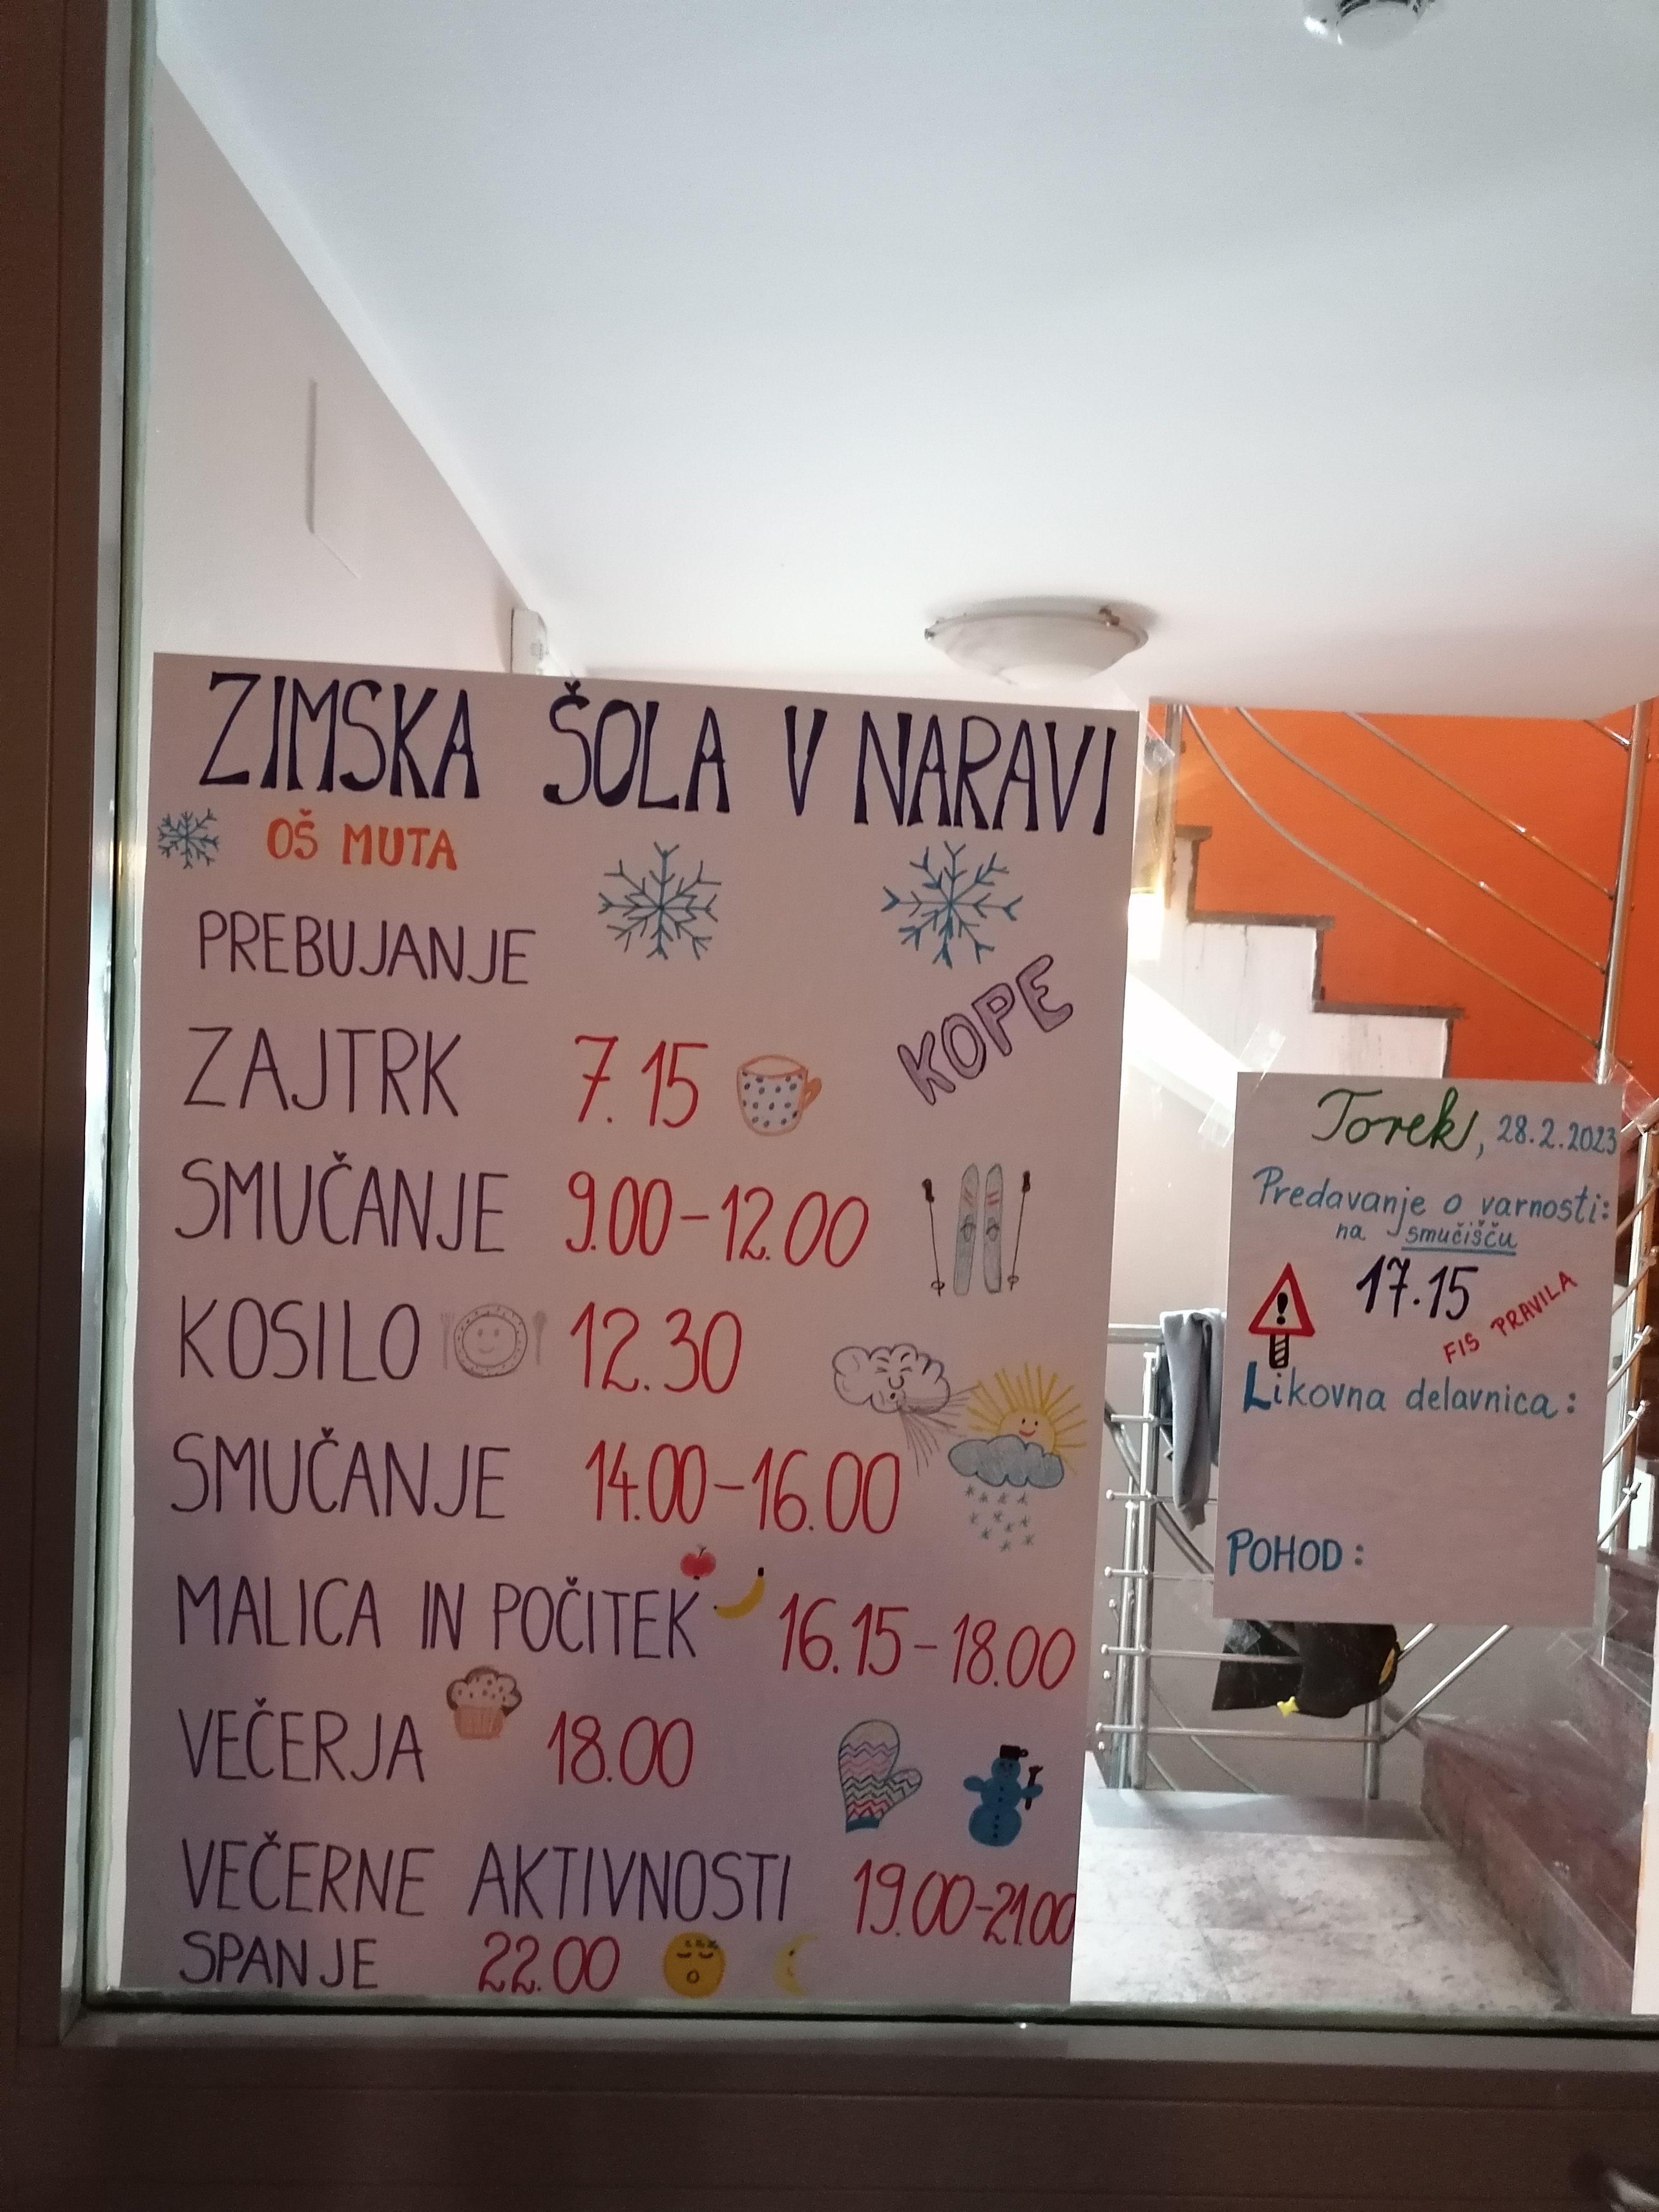 ZIMSKA ŠOLA V NARAVI
OŠ MUTA
PREBUJANJE
KOPE
ZAJTRK 7.15
SMUČANJE 9.00-12.00
KOSILO 12.30
SMUČANJE 14.00-16.00
MALICA IN POČITEK 16.15-18.00
VEČERJA 18.00
VEČERNE AKTIVNOSTI 19.00-21.00
SPANJE 22.00
Torek, 28.2.2023
Predavanje o varnosti:
na smučišču
17.15
FIS PRAVILA
Likovna delavnica:
POHOD: